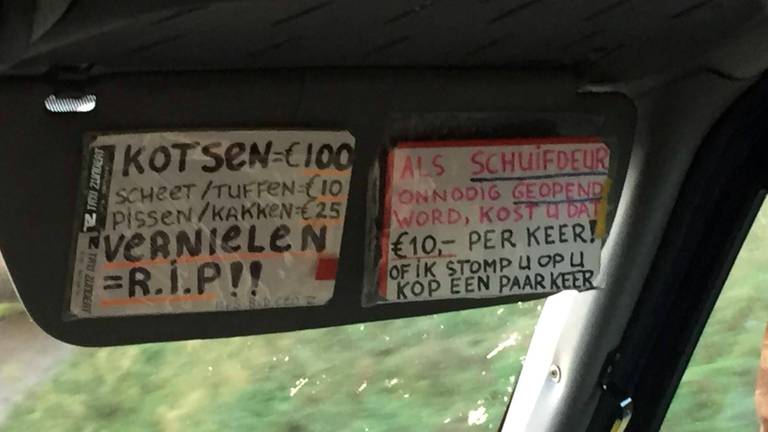 KOTSEN=€100
SCHEET/TUFFEN=€10
PISSEN/KAKKEN=€25
VERNIELEN
=R.I.P!!
TAXI ZUNDERT
TAXI ZUNDERT
ALS SCHUIFDEUR
ONNODIG GEOPEND
WORD, KOST U DAT
€10,- PER KEER!
OF IK STOMP U OP U
KOP EEN PAAR KEER